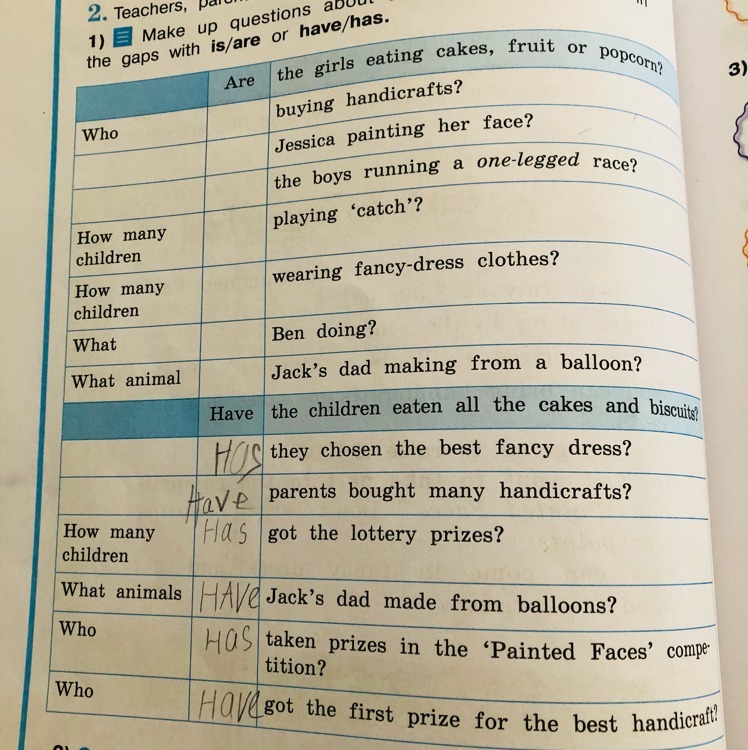 2. Teachers,
1) Make up questions about
the gaps with is/are or have/has.
Are the girls eating cakes, fruit or popcorn?
Who buying handicrafts?
Jessica painting her face?
the boys running a one-legged race?
How many children playing ‘catch’?
How many children wearing fancy-dress clothes?
What Ben doing?
What animal Jack’s dad making from a balloon?
Have the children eaten all the cakes and biscuits?
Has they chosen the best fancy dress?
Have parents bought many handicrafts?
How many children Has got the lottery prizes?
What animals HAVe Jack’s dad made from balloons?
Who Has taken prizes in the ‘Painted Faces’ compe-
tition?
Who Have got the first prize for the best handicraft?
3)